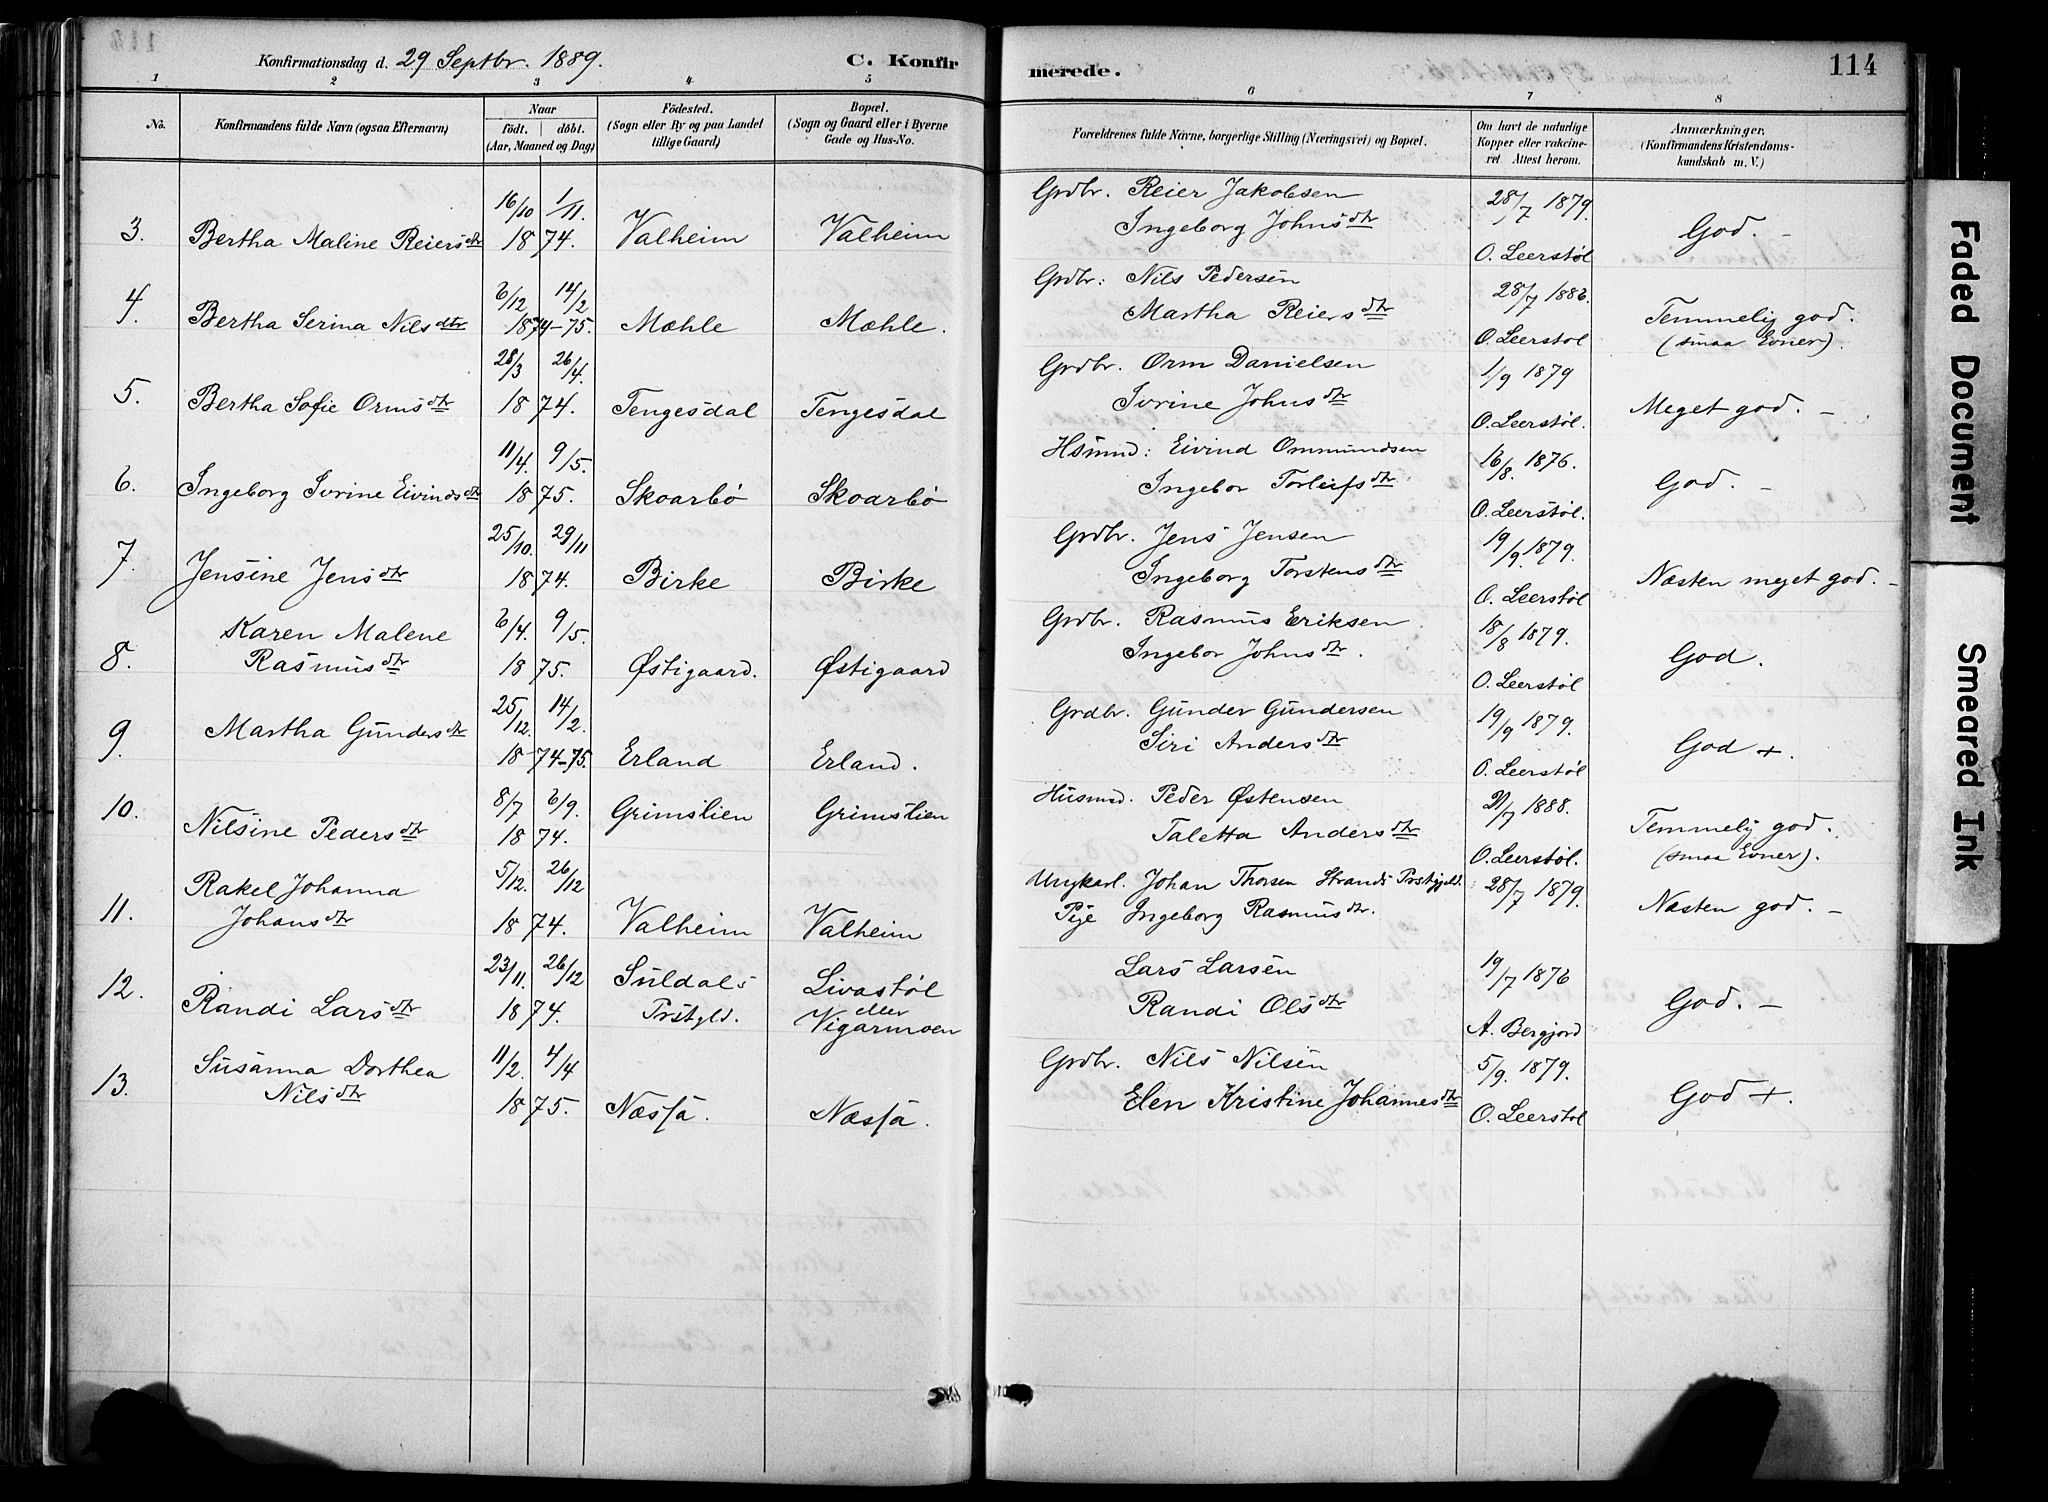 Konfirmationsdag d. 29 Septbr. 1889. C. Konfirmerede. 114
1 2 3 4 5 6 7 8
No. Konfirmandens fulde Navn (ogsaa Efternavn) Naar födt. döbt. (Aar, Maaned og Dag) Födested. (Sogn eller By og paa Landet tillige Gaard) Bopæl. (Sogn og Gaard eller i Byerne Gade og Hus-No. Forældrenes fulde Navne, borgerlige Stilling (Næringsvei) og Bopæl. Om havt de naturlige Kopper eller vakcineret Attest herom. Anmærkninger. (Konfirmandens Kristendomskundskab m. V.)
3. Bertha Maline Reiersdtr 16/10 1/11. 1874. Valheim Valheim Grdbr. Reier Jakobsen Ingeborg Johnsdtr 28/7 1879. O. Leerstøl God. –
4. Bertha Serina Nilsdtr 6/12 14/2 1874–75. Mæhle Mæhle. Grdbr: Nils Pedersen Martha Reiersdtr 28/7 1886. O. Leerstøl Temmelig god. (smaa Evner).
5. Bertha Sofie Ormsdtr 28/3 26/4. 1874. Tengesdal Tengesdal Grdbr. Orm Danielsen Ivrine Johnsdtr 1/9 1879 O. Leerstøl. Meget god. –
6. Ingeborg Ivrine Eivindsdtr 11/4. 9/5. 1875. Skoarbø Skoarbø Hsmnd: Eivind Ommundsen Ingebor Torleifsdtr 16/8. 1876. O. Leerstøl. God. –
7. Jensine Jensdtr 25/10. 29/11 1874. Birke Birke Grdbr. Jens Jensen Ingeborg Torstensdtr 19/9. 1879. O. Leerstøl Næsten meget god. –
8. Karen Malene Rasmusdtr 6/4. 9/5. 1875. Østigaard. Østigaard Grdbr. Rasmus Eriksen Ingebor Johnsdtr. 18/8 1879. O. Leerstøl God.
9. Martha Gundersdtr 25/12. 14/2. 1874–75. Erland Erland. Grdbr. Gunder Gundersen Siri Andersdtr 19/9 1879. O. Leerstøl God +.
10. Nilsine Pedersdtr 8/7 6/9. 1874. Grimslien Grimslien Husmd. Peder Østensen Taletta Andersdtr 21/7 1888. O. Leerstøl. Temmelig god. (smaa Evner).
11. Rakel Johanna Johansdtr 5/12. 26/12 1874. Valheim Valheim Ungkarl. Johan Thorsen Strands Prstgjeld. Pige Ingeborg Rasmusdtr. 28/7 1879. Næsten god. –
12. Randi Larsdtr 23/11. 26/12 1874. Suldals Prstgld. Livastøl eller Vigarmoen Lars Larsen Randi Olsdtr 19/7 1876 A. Bergjord God. –
13. Susanna Dorthea Nilsdtr 11/2. 4/4 1875. Næssa. Næssa. Grdbr. Nils Nilsen Elen Kristine Johannesdtr 5/9. 1879. O. Leerstøl God +.
Faded Document
Smeared Ink